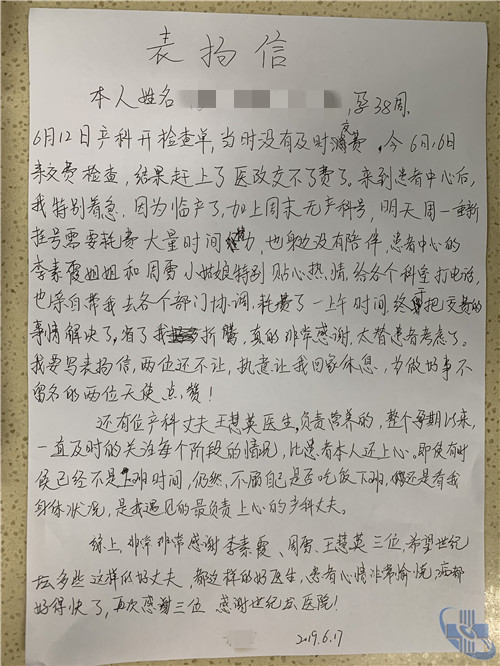 表扬信
本人姓名 ，孕38周，
6月12日产科开检查单，当时没有及时缴费，今6月16日
来交费检查，结果赶上了医改交不了费了。来到患者中心后，
我特别着急，因为临产了，加上周末无产科号，明天周一重新
挂号需要耗费大量时间 ，也身边没有陪伴，患者中心的
李素霞姐姐和周雪小姑娘特别贴心热情，给各个科室打电话，
也亲自带我去各个部门协调，耗费了一上午时间，终于把交费的
事情解决了。省了我折腾，真的非常感谢，太替患者考虑了。
我要写表扬信，两位还不让，执意让我回家休息，为做好事不
留名的两位天使点赞！
还有位产科丈夫王慧英医生，负责营养的，整个孕期以来，
一直及时的关注每个阶段的情况，比患者本人还上心。即使有时
候已经不是上班时间，仍然，不顾自己是否吃饭下班，还是看我
身体状况，是我遇见的最负责上心的产科丈夫。
综上，非常非常感谢李素霞、周雪、王慧英三位，希望世纪
坛多些这样的好丈夫，都这样的好医生，患者心情非常愉悦，病都
好得快了，再次感谢三位 感谢世纪坛医院！
2019.6.17